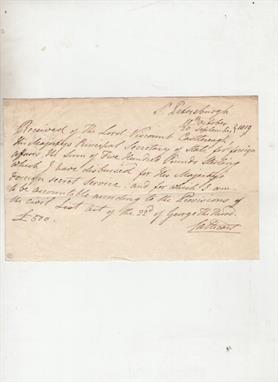 St Petersburgh
October
30 September } 1819
Received of the Lord Viscount Castlereagh,
His Majestys Principal Secretary of State for foreign
affairs, the Sum of Five Hundred Pounds Sterling
which I have disbursed for His Majesty's
Foreign Secret Service, and for which I am
to be accountable according to the Provisions of
the Civil List Act of the 22d of George the Third.
£500.
Cathcart